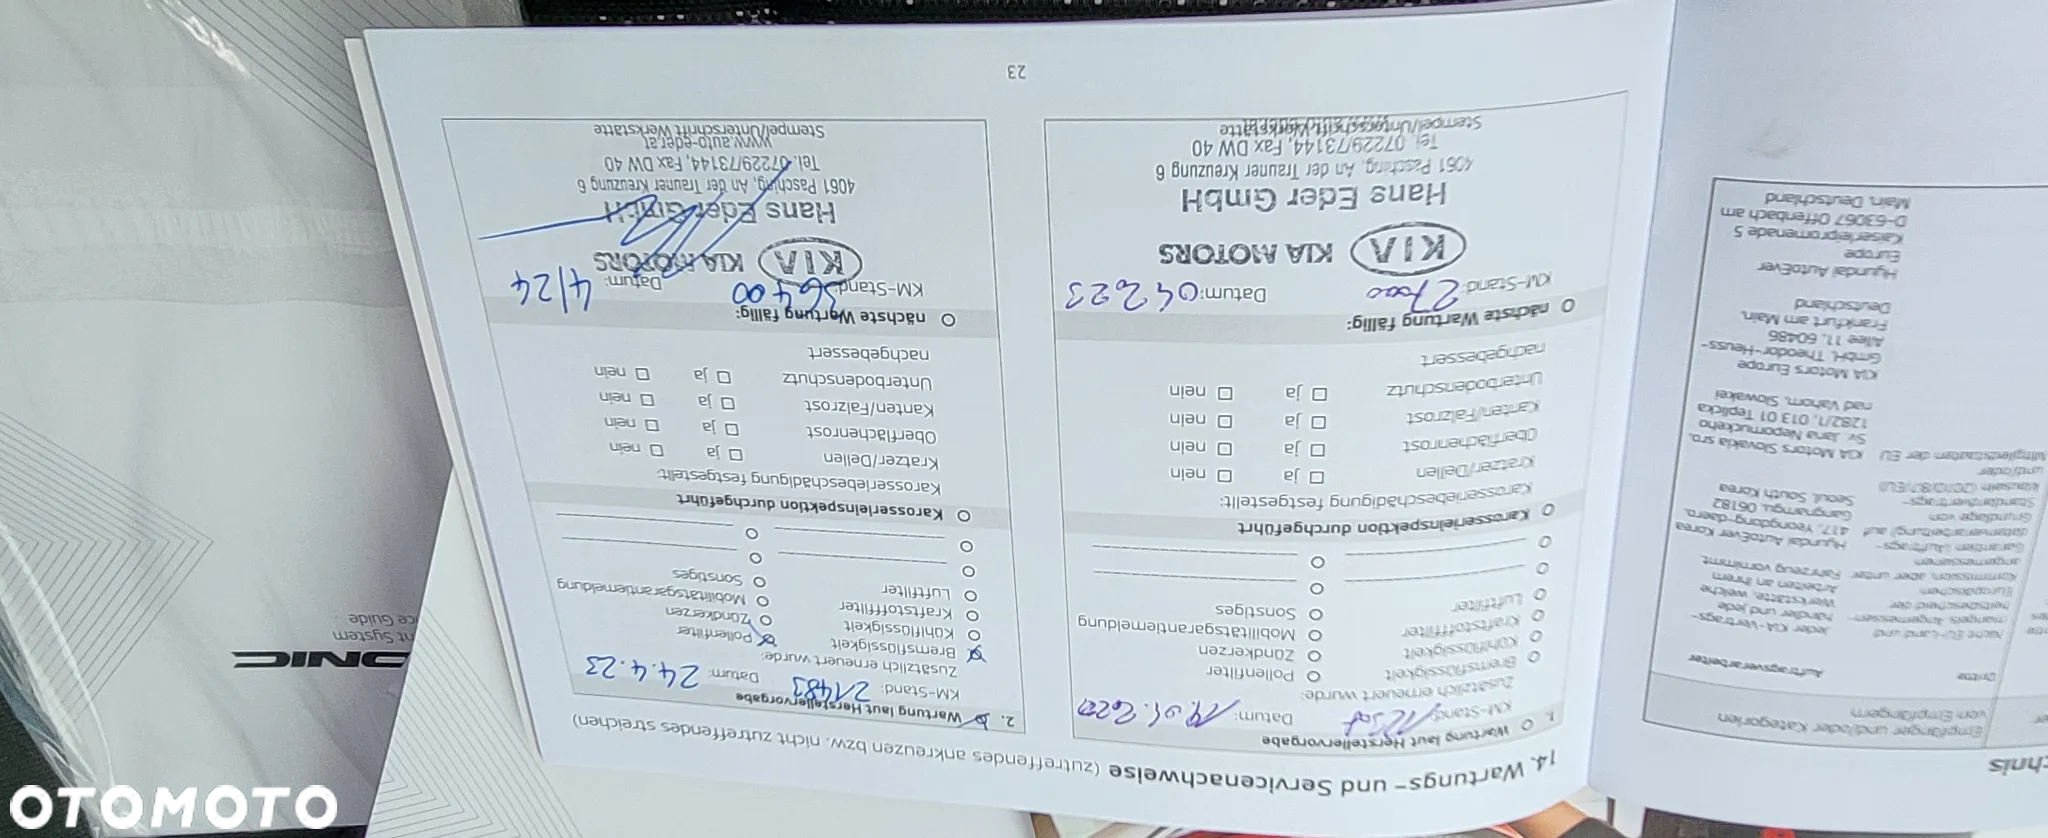 14. Wartungs- und Servicenachweise (zutreffendes ankreuzen bzw. nicht zutreffendes streichen)
1. Wartung laut Herstellervorgabe
KM-Stand: Datum:
Zusätzlich erneuert wurde:
Bremsflüssigkeit Pollenfilter
Kühlflüssigkeit Zündkerzen
Kraftstofffilter Mobilitätsgarantiemeldung
Luftfilter Sonstiges
Karosserieinspektion durchgeführt
Karosseriebeschädigung festgestellt:
Kratzer/Dellen ja nein
Oberflächenrost ja nein
Kanten/Falzrost ja nein
Unterbodenschutz ja nein
nachgebessert
nächste Wartung fällig:
KM-Stand: 27000 Datum: 04 2023
KIA KIA MOTORS
Hans Eder GmbH
4061 Pasching, An der Trauner Kreuzung 6
Tel. 07229/73144, Fax DW 40
Stempel/Unterschrift Werkstätte
2. Wartung laut Herstellervorgabe
KM-Stand: 21483 Datum: 24.4.23
Zusätzlich erneuert wurde:
Bremsflüssigkeit Pollenfilter
Kühlflüssigkeit Zündkerzen
Kraftstofffilter Mobilitätsgarantiemeldung
Luftfilter Sonstiges
Karosserieinspektion durchgeführt
Karosseriebeschädigung festgestellt:
Kratzer/Dellen ja nein
Oberflächenrost ja nein
Kanten/Falzrost ja nein
Unterbodenschutz ja nein
nachgebessert
nächste Wartung fällig:
KM-Stand: 36400 Datum: 4/24
KIA KIA MOTORS
Hans Eder GmbH
4061 Pasching, An der Trauner Kreuzung 6
Tel. 07229/73144, Fax DW 40
www.auto-eder.at
Stempel/Unterschrift Werkstätte
23
chnis
Empfänger und/oder Kategorien
von Empfängern
Dritte
Auftragsverarbeiter
Jeder KIA-Vertrags-
händler und jede
Werkstätte, welche
Arbeiten an Ihrem
Fahrzeug vornimmt
Hyundai AutoEver Korea
417, Yeongdong-daero,
Gangnamgu, 06182
Seoul, South Korea
KIA Motors Slovakia sro,
Sv. Jana Nepomuckeho
1282/1, 013 01 Teplicka
nad Vahom, Slowakei
KIA Motors Europe
GmbH, Theodor-Heuss-
Allee 11, 60486
Frankfurt am Main,
Deutschland
Hyundai AutoEver
Europe
Kaiserleipromenade 5
D-63067 Offenbach am
Main, Deutschland
nicht EU-Land und
Kommission, aber unter
angemessenen
Garantien (Auftrags-
datenverarbeitung) auf
Grundlage von
Standardvertrags-
klauseln (2010/87/EU)
und/oder
Mitgliedstaaten der EU
ONIC
nt System
ce Guide
OTOMOTO